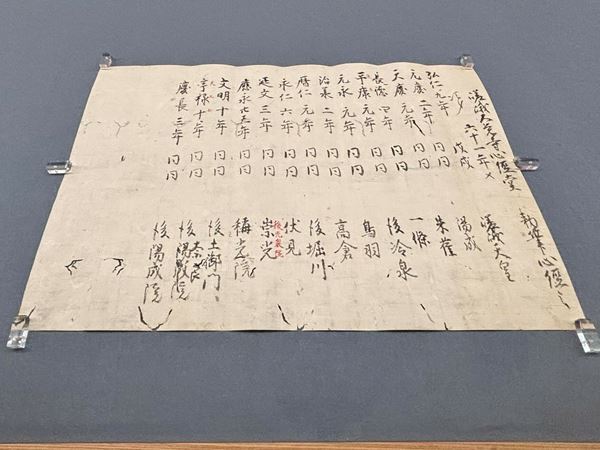 嵯峨大覚寺心経堂 勅筆心経之
六十一年メ
弘仁九年 戊戌 嵯峨天皇
元慶二年 同 同 陽成
天慶元年 同 同 朱雀
長徳四年 同 同 一條
平康元年 同 同 後冷泉
元永元年 同 同 鳥羽
治承二年 同 同 高倉
暦仁元年 同 同 後堀川
永仁六年 同 同 伏見
延文三年 同 同 崇光
後光厳院
應永廿五年 同 同 稱光院
文明十年 同 同 後土御門
享禄十年 同 同 後 院
奈良
慶長三年 同 同 後陽成院